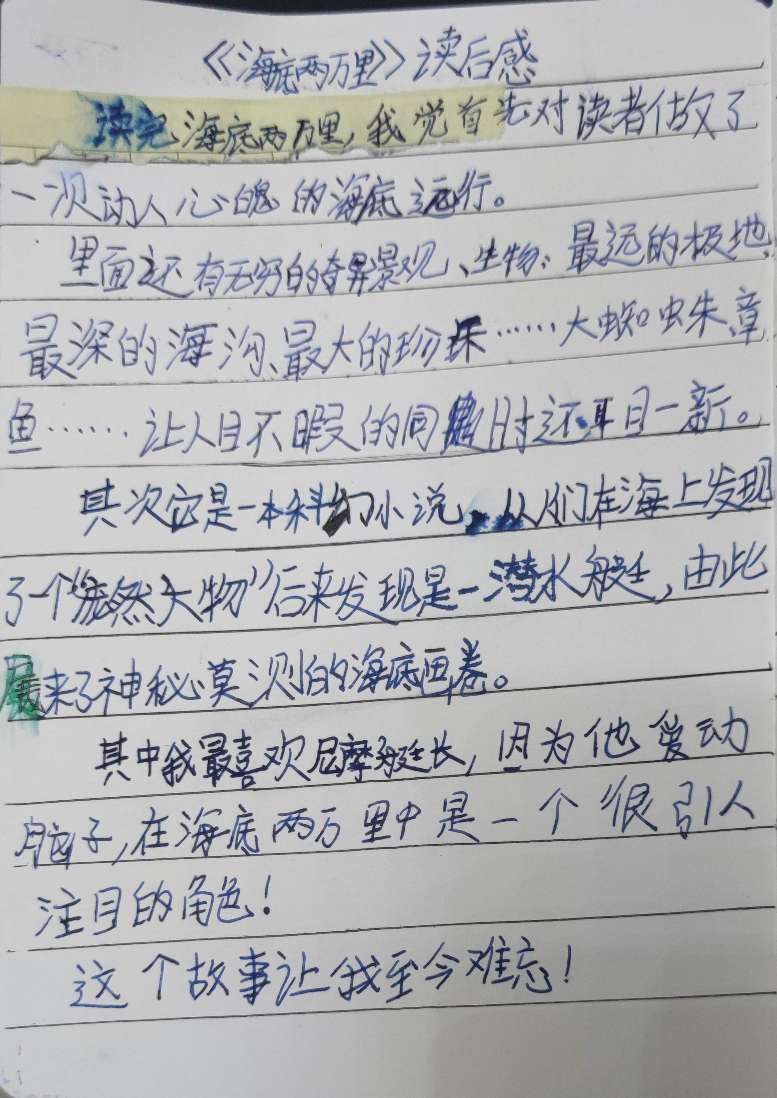 《海底两万里》读后感
读完海底两万里，我觉首先对读者做了
一次动人心魄的海底远行。
里面还有无穷的奇异景观、生物：最远的极地、
最深的海沟、最大的珍珠……大蜘蛛、章
鱼……让人目不暇的同时还耳目一新。
其次它是一本科幻小说，从们在海上发现
了一个“庞然大物”后来发现是一潜水艇，由此
展来了神秘莫测的海底画卷。
其中我最喜欢尼摩艇长，因为他爱动
脑子，在海底两万里中是一个很引人
注目的角色！
这个故事让我至今难忘！